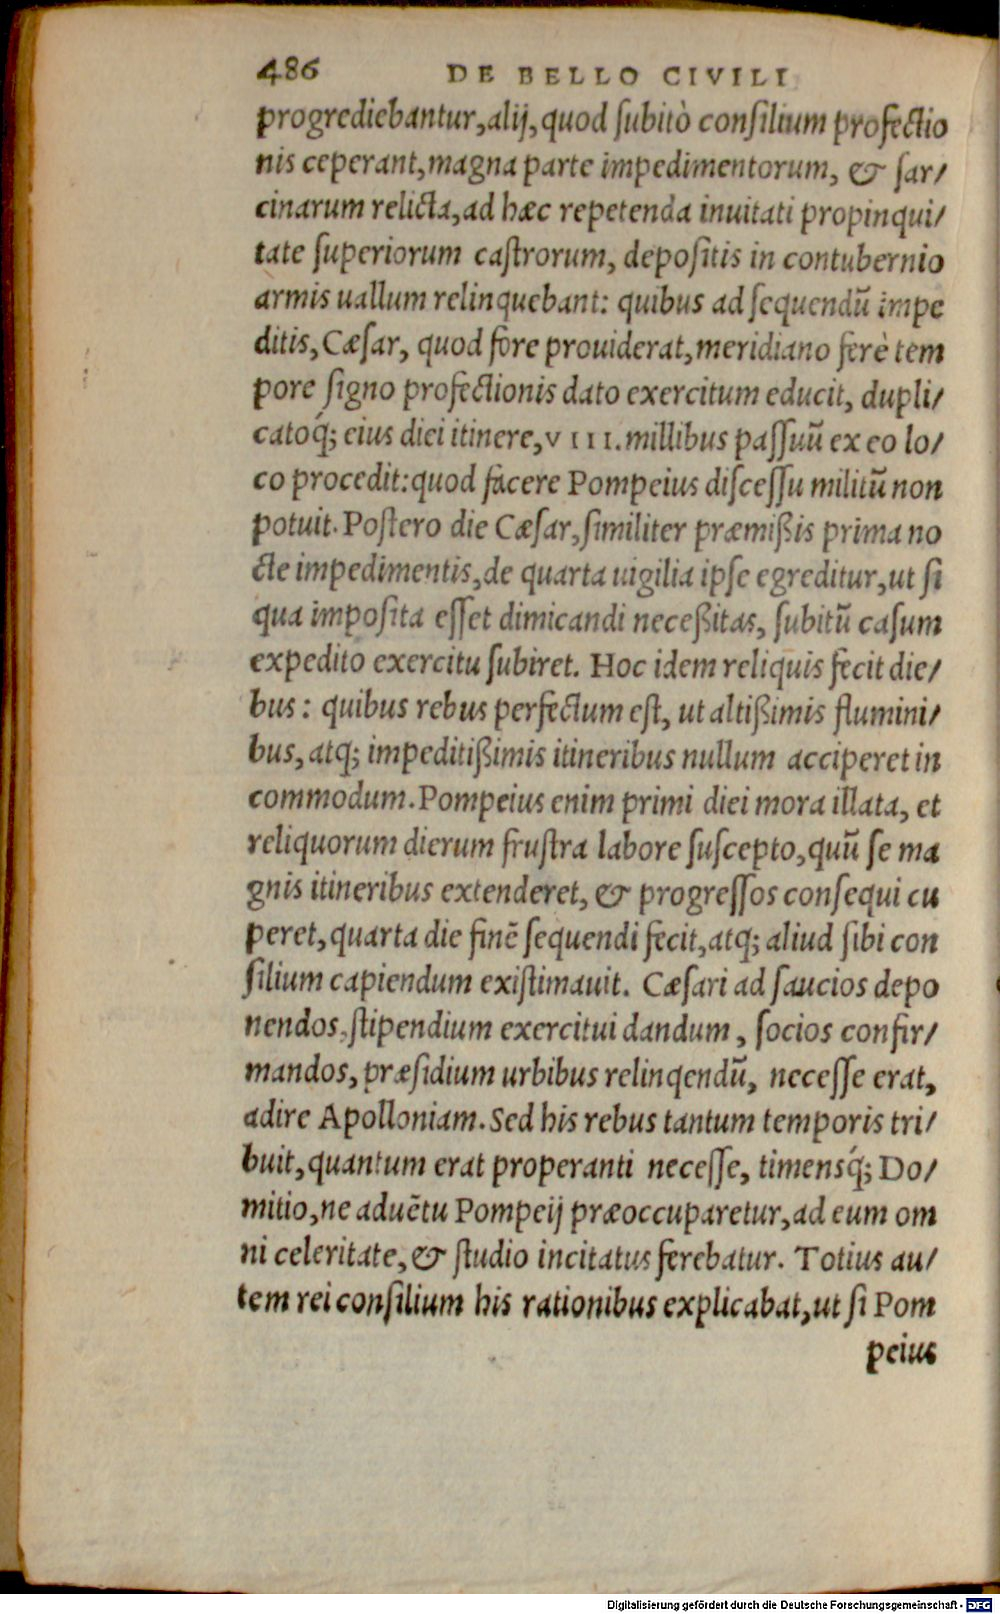 486 DE BELLO CIVILI
progrediebantur, alij, quod subitò consilium profectio
nis ceperant, magna parte impedimentorum, & sar/
cinarum relicta, ad hæc repetenda inuitati propinqui/
tate superiorum castrorum, depositis in contubernio
armis uallum relinquebant: quibus ad sequendũ impe
ditis, Cæsar, quod fore prouiderat, meridiano ferè tem
pore signo profectionis dato exercitum educit, dupli/
catoq́; eius diei itinere, VIII. millibus passuũ ex eo lo/
co procedit: quod facere Pompeius discessu militũ non
potuit. Postero die Cæsar, similiter præmißis prima no
cte impedimentis, de quarta uigilia ipse egreditur, ut si
qua imposita esset dimicandi neceßitas, subitũ casum
expedito exercitu subiret. Hoc idem reliquis fecit die/
bus: quibus rebus perfectum est, ut altißimis flumini/
bus, atq; impeditißimis itineribus nullum acciperet in
commodum. Pompeius enim primi diei mora illata, et
reliquorum dierum frustra labore suscepto, quũ se ma
gnis itineribus extenderet, & progressos consequi cu
peret, quarta die finẽ sequendi fecit, atq; aliud sibi con
silium capiendum existimauit. Cæsari ad saucios depo
nendos, stipendium exercitui dandum, socios confir/
mandos, præsidium urbibus relinqendũ, necesse erat,
adire Apolloniam. Sed his rebus tantum temporis tri/
buit, quantum erat properanti necesse, timensq́; Do/
mitio, ne aduẽtu Pompeij præoccuparetur, ad eum om
ni celeritate, & studio incitatus ferebatur. Totius au/
tem rei consilium his rationibus explicabat, ut si Pom
peius
Digitalisierung gefördert durch die Deutsche Forschungsgemeinschaft - DFG